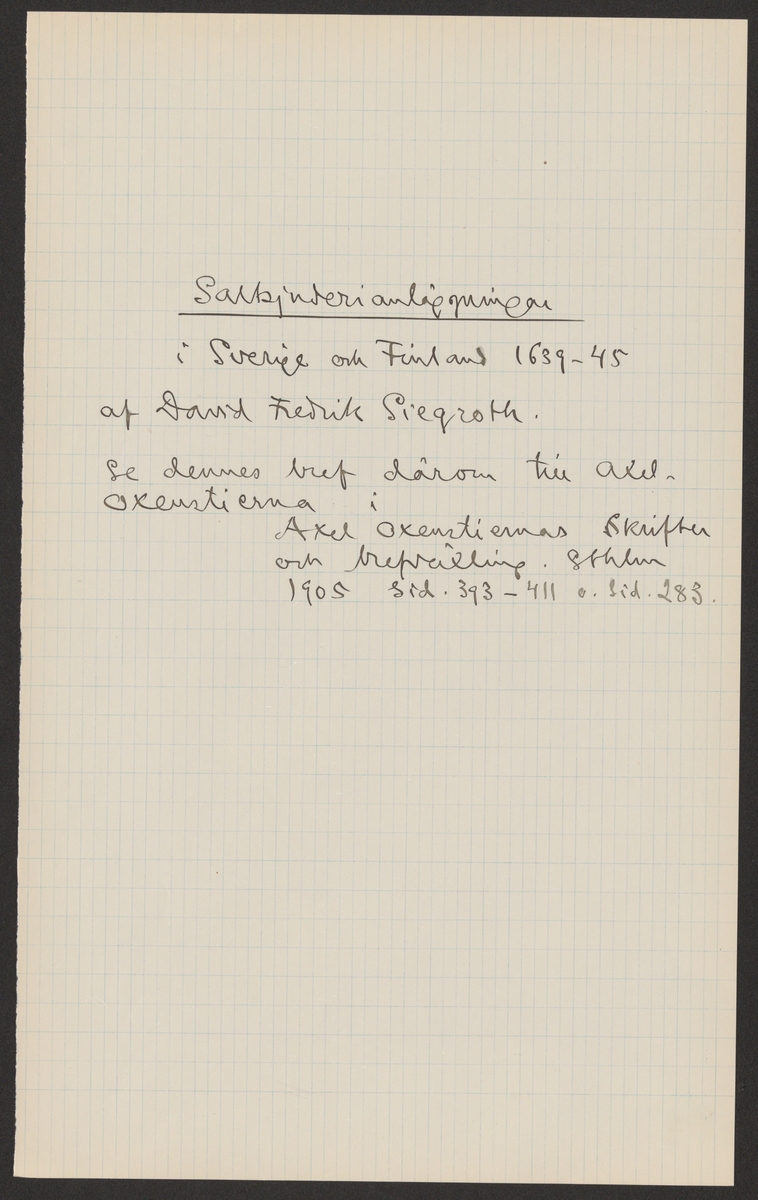 Saltsjuderianläggningar
i Sverige och Finland 1639-45
af David Fredrik Siegroth.
Se dennes bref därom till Axel
Oxenstierna i
Axel Oxenstiernas Skrifter
och brefväxling. Sthlm
1905 Sid. 393-411 o. Sid. 283.